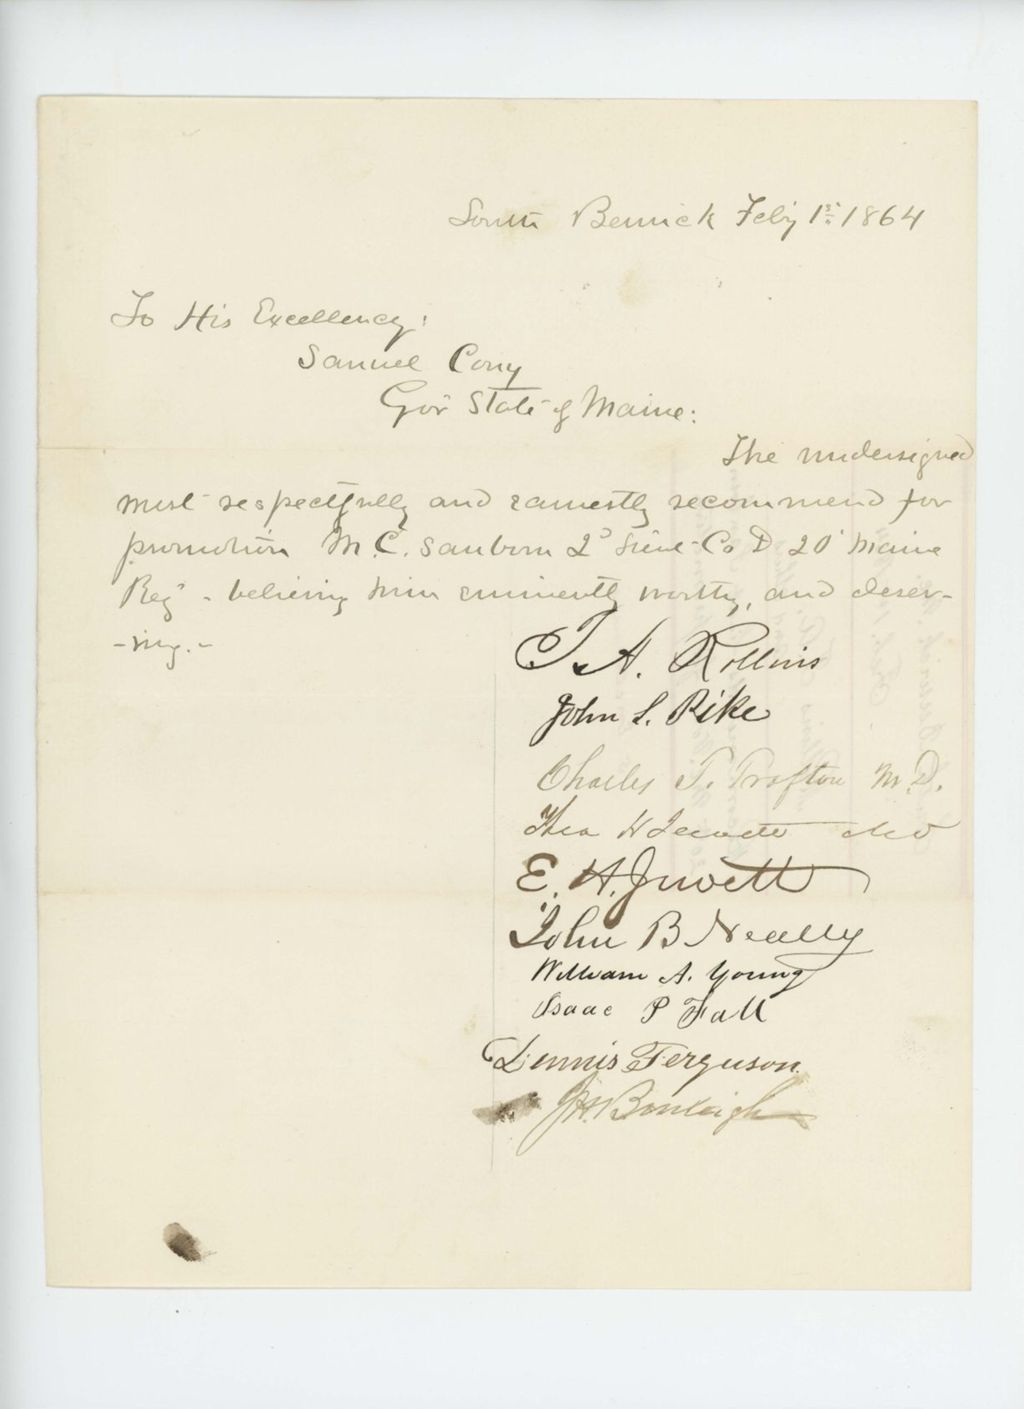 South Berwick Feby 1st 1864
To His Excellency:
Samuel Cony
Gov State of Maine:
The undersigned
most respectfully and earnestly recommend for
promotion M. C. Sanborn 2d Lieut Co D 20 Maine
Reg - believing him eminently worthy, and deser-
-ving.-
T. A. Rollins
John S. Pike
Charles T. Trafton M.D.
Theo H Jewett MD
E. H. Jewett
John B Neally
William A. Young
Isaac P Fall
Dennis Ferguson.
J H Burleigh